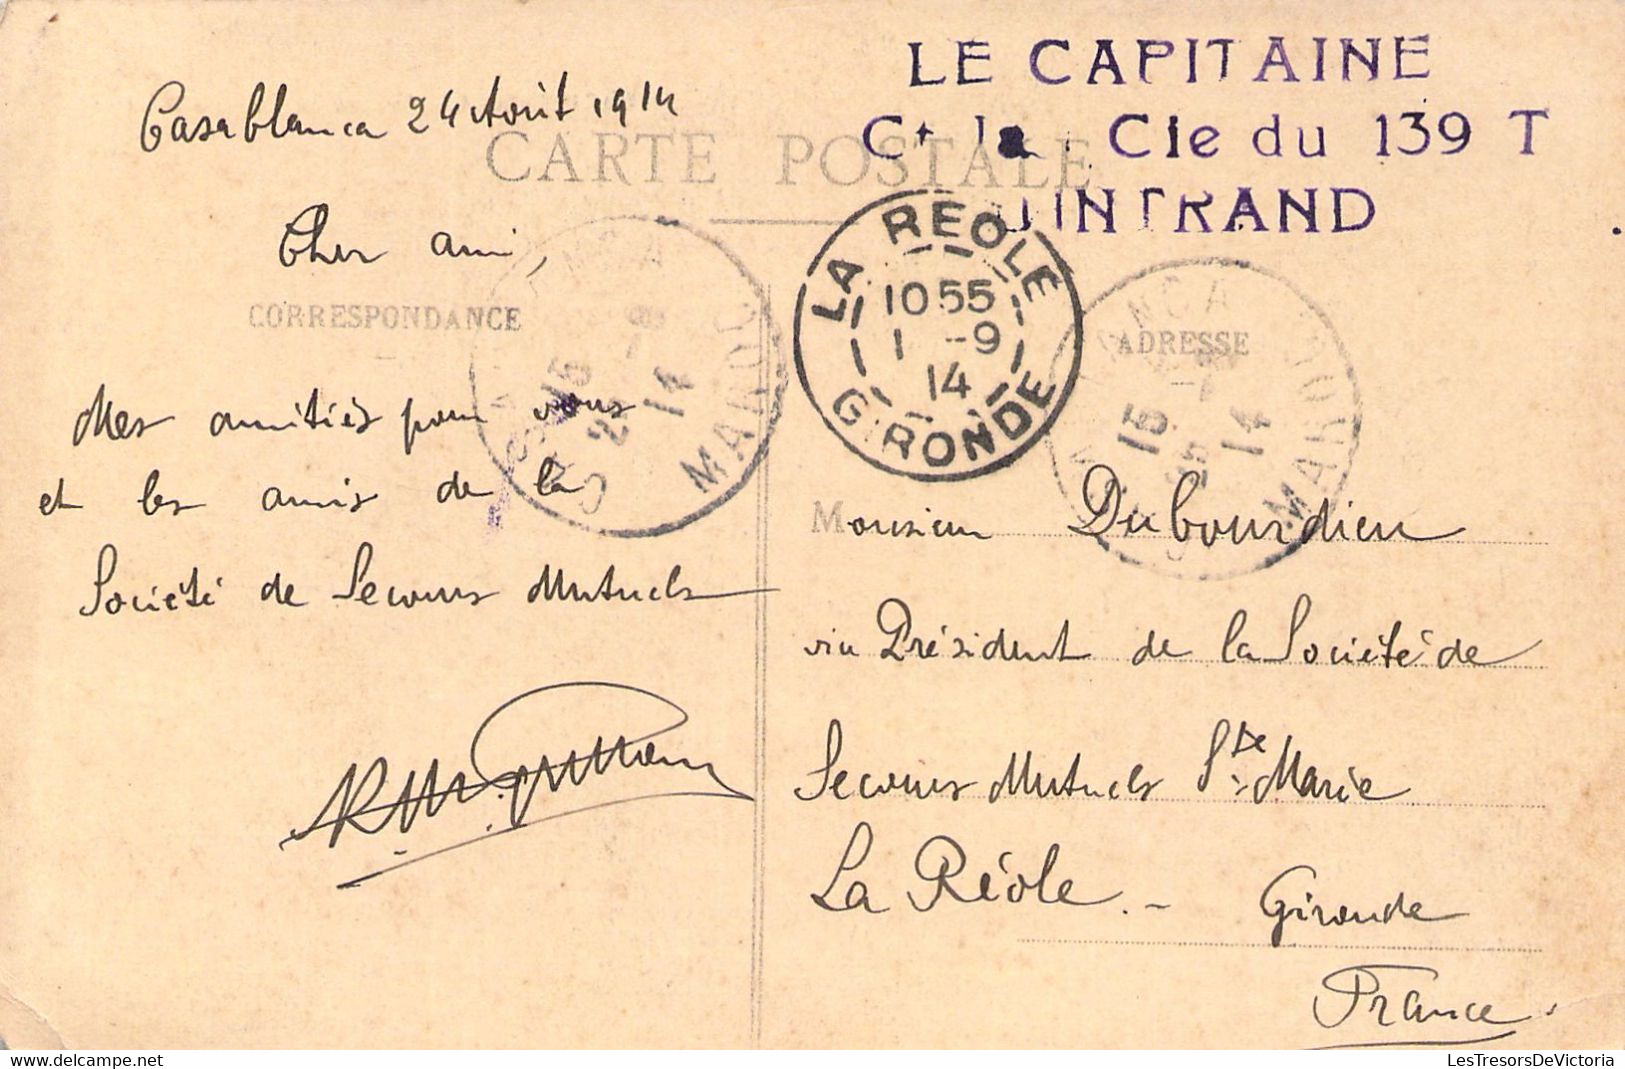 LE CAPITAINE
Ct la Cie du 139 T
INTRAND
Casablanca 24 Août 1914
CARTE POSTALE
Cher ami,
CORRESPONDANCE
Mes amitiés pour vous
et les amis de la
Société de Secours Mutuels
LA REOLE
1055
1 -9
14
GIRONDE
15
14
MAROC
ADRESSE
15
14
MAROC
Monsieur Dubourdieu
vice Président de la Société de
Secours Mutuels Ste Marie
La Réole. - Gironde
France.
LesTresorsDeVictoria